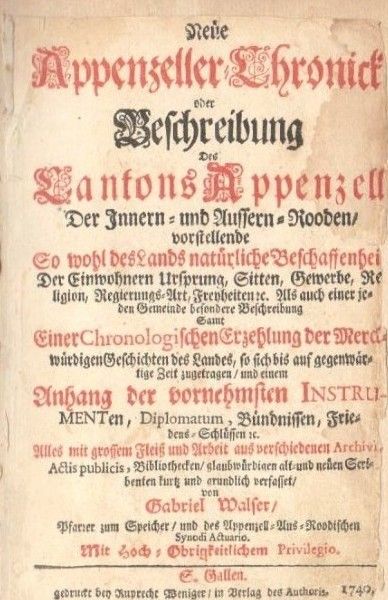 Neüe
Appenzeller-Chronick
oder
Beschreibung
Des
Cantons Appenzell
Der Innern- und Aussern-Rooden/
vorstellende
So wohl des Lands natürliche Beschaffenhei
Der Einwohnern Ursprung, Sitten, Gewerbe, Re
ligion, Regierungs-Art, Freyheiten ꝛc. Als auch einer je-
den Gemeinde besondere Beschreibung
Samt
Einer Chronologischen Erzehlung der Merck-
würdigen Geschichten des Landes, so sich bis auf gegenwär-
tige Zeit zugetragen/ und einem
Anhang der vornehmsten INSTRU-
MENTen, Diplomatum, Bündnissen, Frie-
dens-Schlüssen ꝛc.
Alles mit grossem Fleiß und Arbeit aus verschiedenen Archivi,
Actis publicis, Bibliothecken/ glaubwürdigen alt- und neüen Scri-
benten kurtz und grundlich verfasset/
von
Gabriel Walser/
Pfarrer zum Speicher/ und des Appenzell-Aus-Roodischen
Synodi Actuario.
Mit Hoch-Obrigkeitlichem Privilegio.
S. Gallen.
gedruckt bey Ruprecht Weniger/ in Verlag des Authoris. 1740.